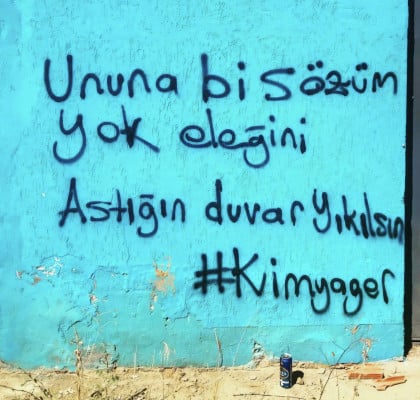 Ununa bi sözüm
yok eleğini
Astığın duvar yıkılsın
#Kimyager